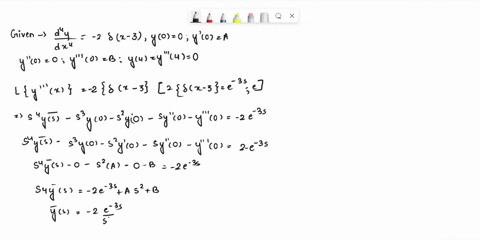 Given → d⁴y/dx⁴ = -2 δ(x-3), y(0)=0; y'(0)=A
y''(0)=0; y'''(0)=B; y(4)=y'''(4)=0
L{y''''(x)} = -2{δ(x-3} [2{δ(x-3}=e^-3s; e]
⇒ s⁴ȳ(s) - s³y(0) - s²y'(0) - sy''(0) - y'''(0) = -2e^-3s
s⁴ȳ(s) - s³y(0) - s²y'(0) - sy''(0) - y'''(0) = 2e^-3s
s⁴ȳ(s) - 0 - s²(A) - 0 - B = -2e^-3s
s4ȳ(s) = -2e^-3s + A s² + B
ȳ(s) = -2 e^-3s/s